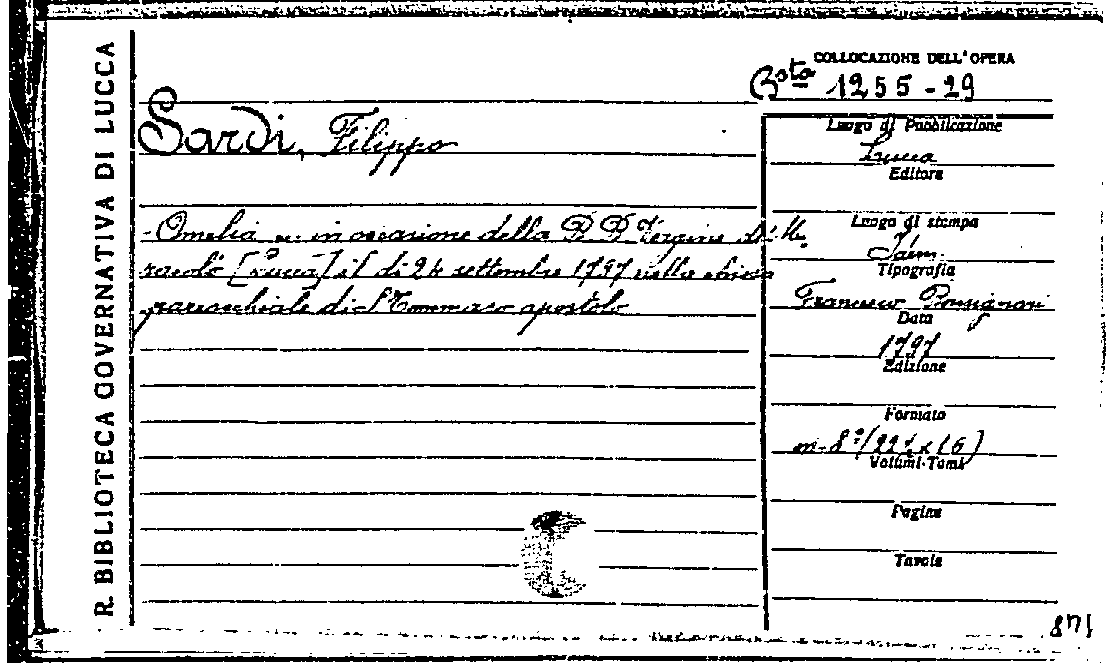 R. BIBLIOTECA GOVERNATIVA DI LUCCA
COLLOCAZIONE DELL'OPERA
Bsta 1255-29
Sardi, Filippo
- Omelia ... in occasione della B. B. Vergine del Mi-
racolo [Lucca] il di 24 settembre 1797 nella chiesa
parrocchiale di S. Tommaso apostolo
Luogo di Pubblicazione
Lucca
Editore
Luogo di stampa
Idem.
Tipografia
Francesco
Data
1797
Edizione
Formato
in-8º (22½ x 16)
Volumi-Tomi
Pagine
Tavole
871